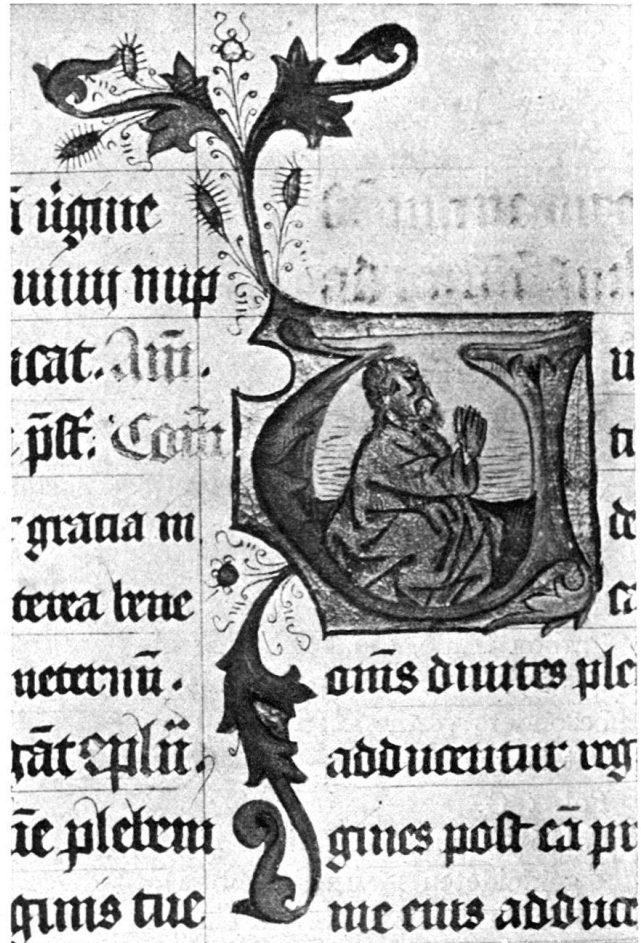 ūgine
nup
icat. Am̄.
p̄sſ. Com̄
gracia in
terea bene
neternū.
gāt
plebem
ginis tue
V u
ti
de
ca
om̄s diuites ple
adducentur reg
gines post eā pr
me eius adduce